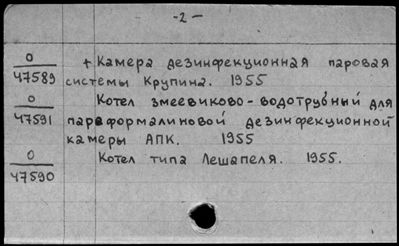 -2-
0 + Камера дезинфекционная паровая
47589 системы Крупина. 1955
0 Котел змеевиково-водотрубный для
47591 параформалиновой дезинфекционной
камеры АПК. 1955
0 Котел типа Лешапеля. 1955.
47590